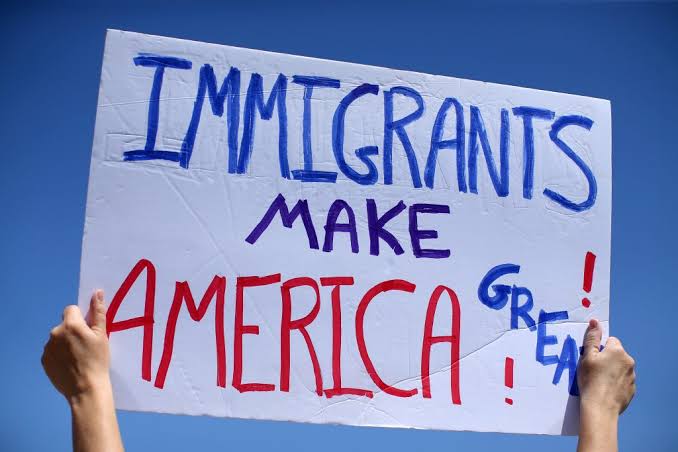 IMMIGRANTS
MAKE
AMERICA!
GREA !